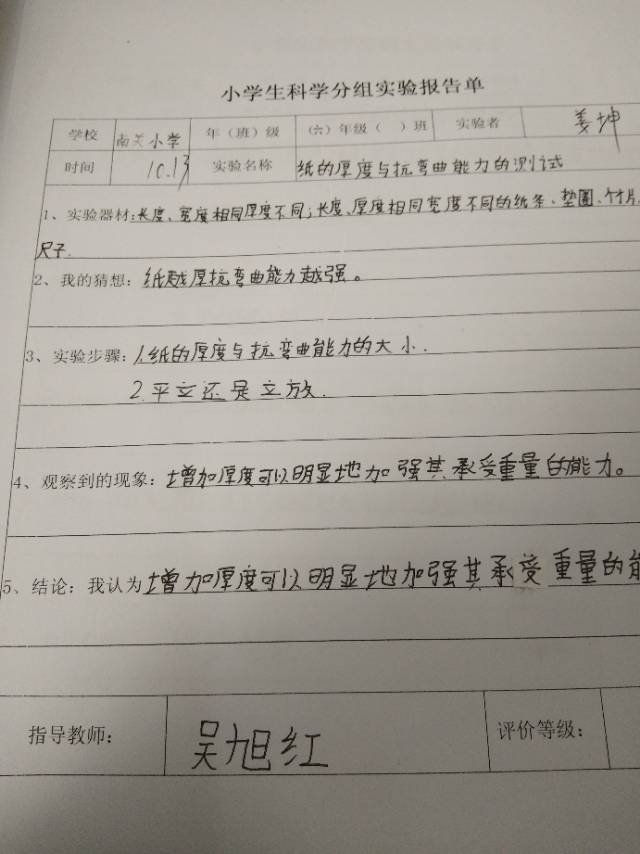 小学生科学分组实验报告单
学校 南关小学 年（班）级 （六）年级（ ）班 实验者 姜坤
时间 10.13 实验名称 纸的厚度与抗弯曲能力的测试
1、实验器材：长度、宽度相同厚度不同；长度、厚度相同宽度不同的纸条、垫圈、竹片、
尺子.
2、我的猜想：纸越厚抗弯曲能力越强。
3、实验步骤：1.纸的厚度与抗弯曲能力的大小.
2.平立还是立放.
4、观察到的现象：增加厚度可以明显地加强其承受重量的能力。
5、结论：我认为增加厚度可以明显地加强其承受重量的能
指导教师： 吴旭红 评价等级：